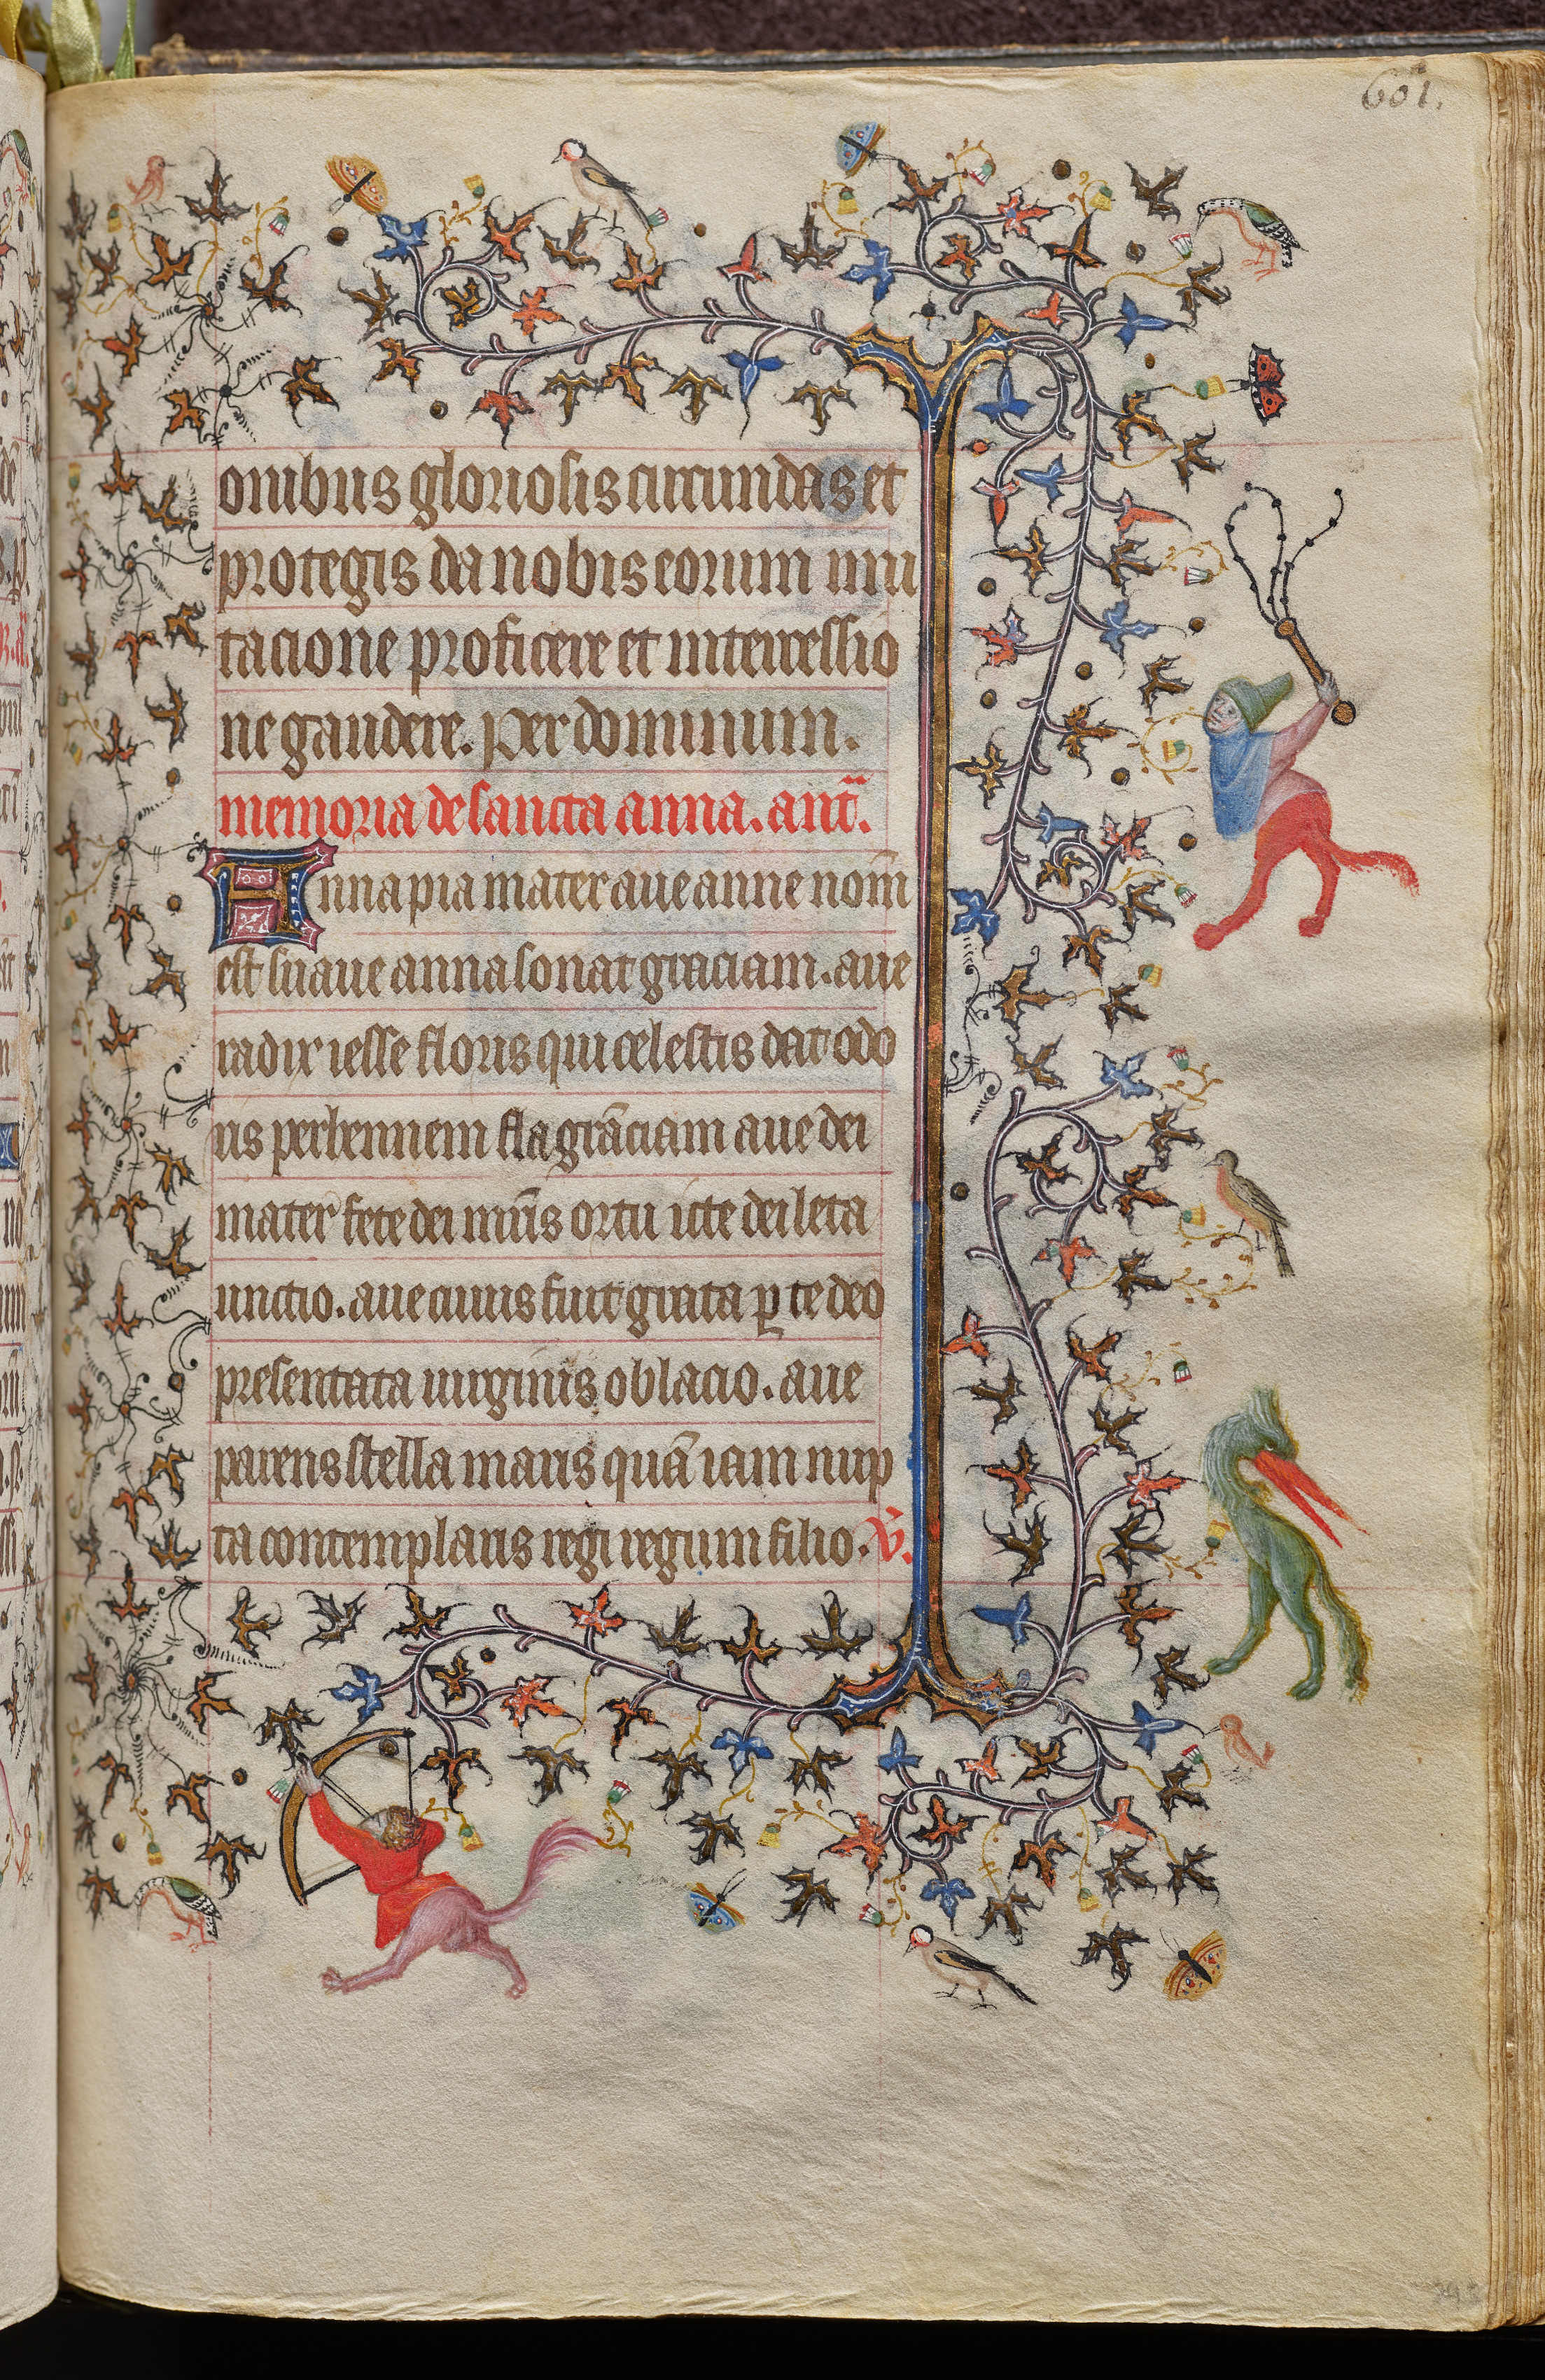 601.
onibus gloriosis circundas et
protegis da nobis eorum imi
tacione proficere et intercessio
ne gaudere. Per dominum.
memoria de sancta anna. ant̄.
Anna pia mater aue anne nom̄
est suaue anna sonat graciam. aue
radix iesse floris qui celestis dat odo
ris perhennem flagrāciam aue dei
mater fete dei mūs ortu icte dei leta
unctio. aue cuius fuit grata ꝑ te deo
presentata uirginis oblacio. aue
parens stella maris quā iam nup
ta contemplaris regi regum filio. V̄.